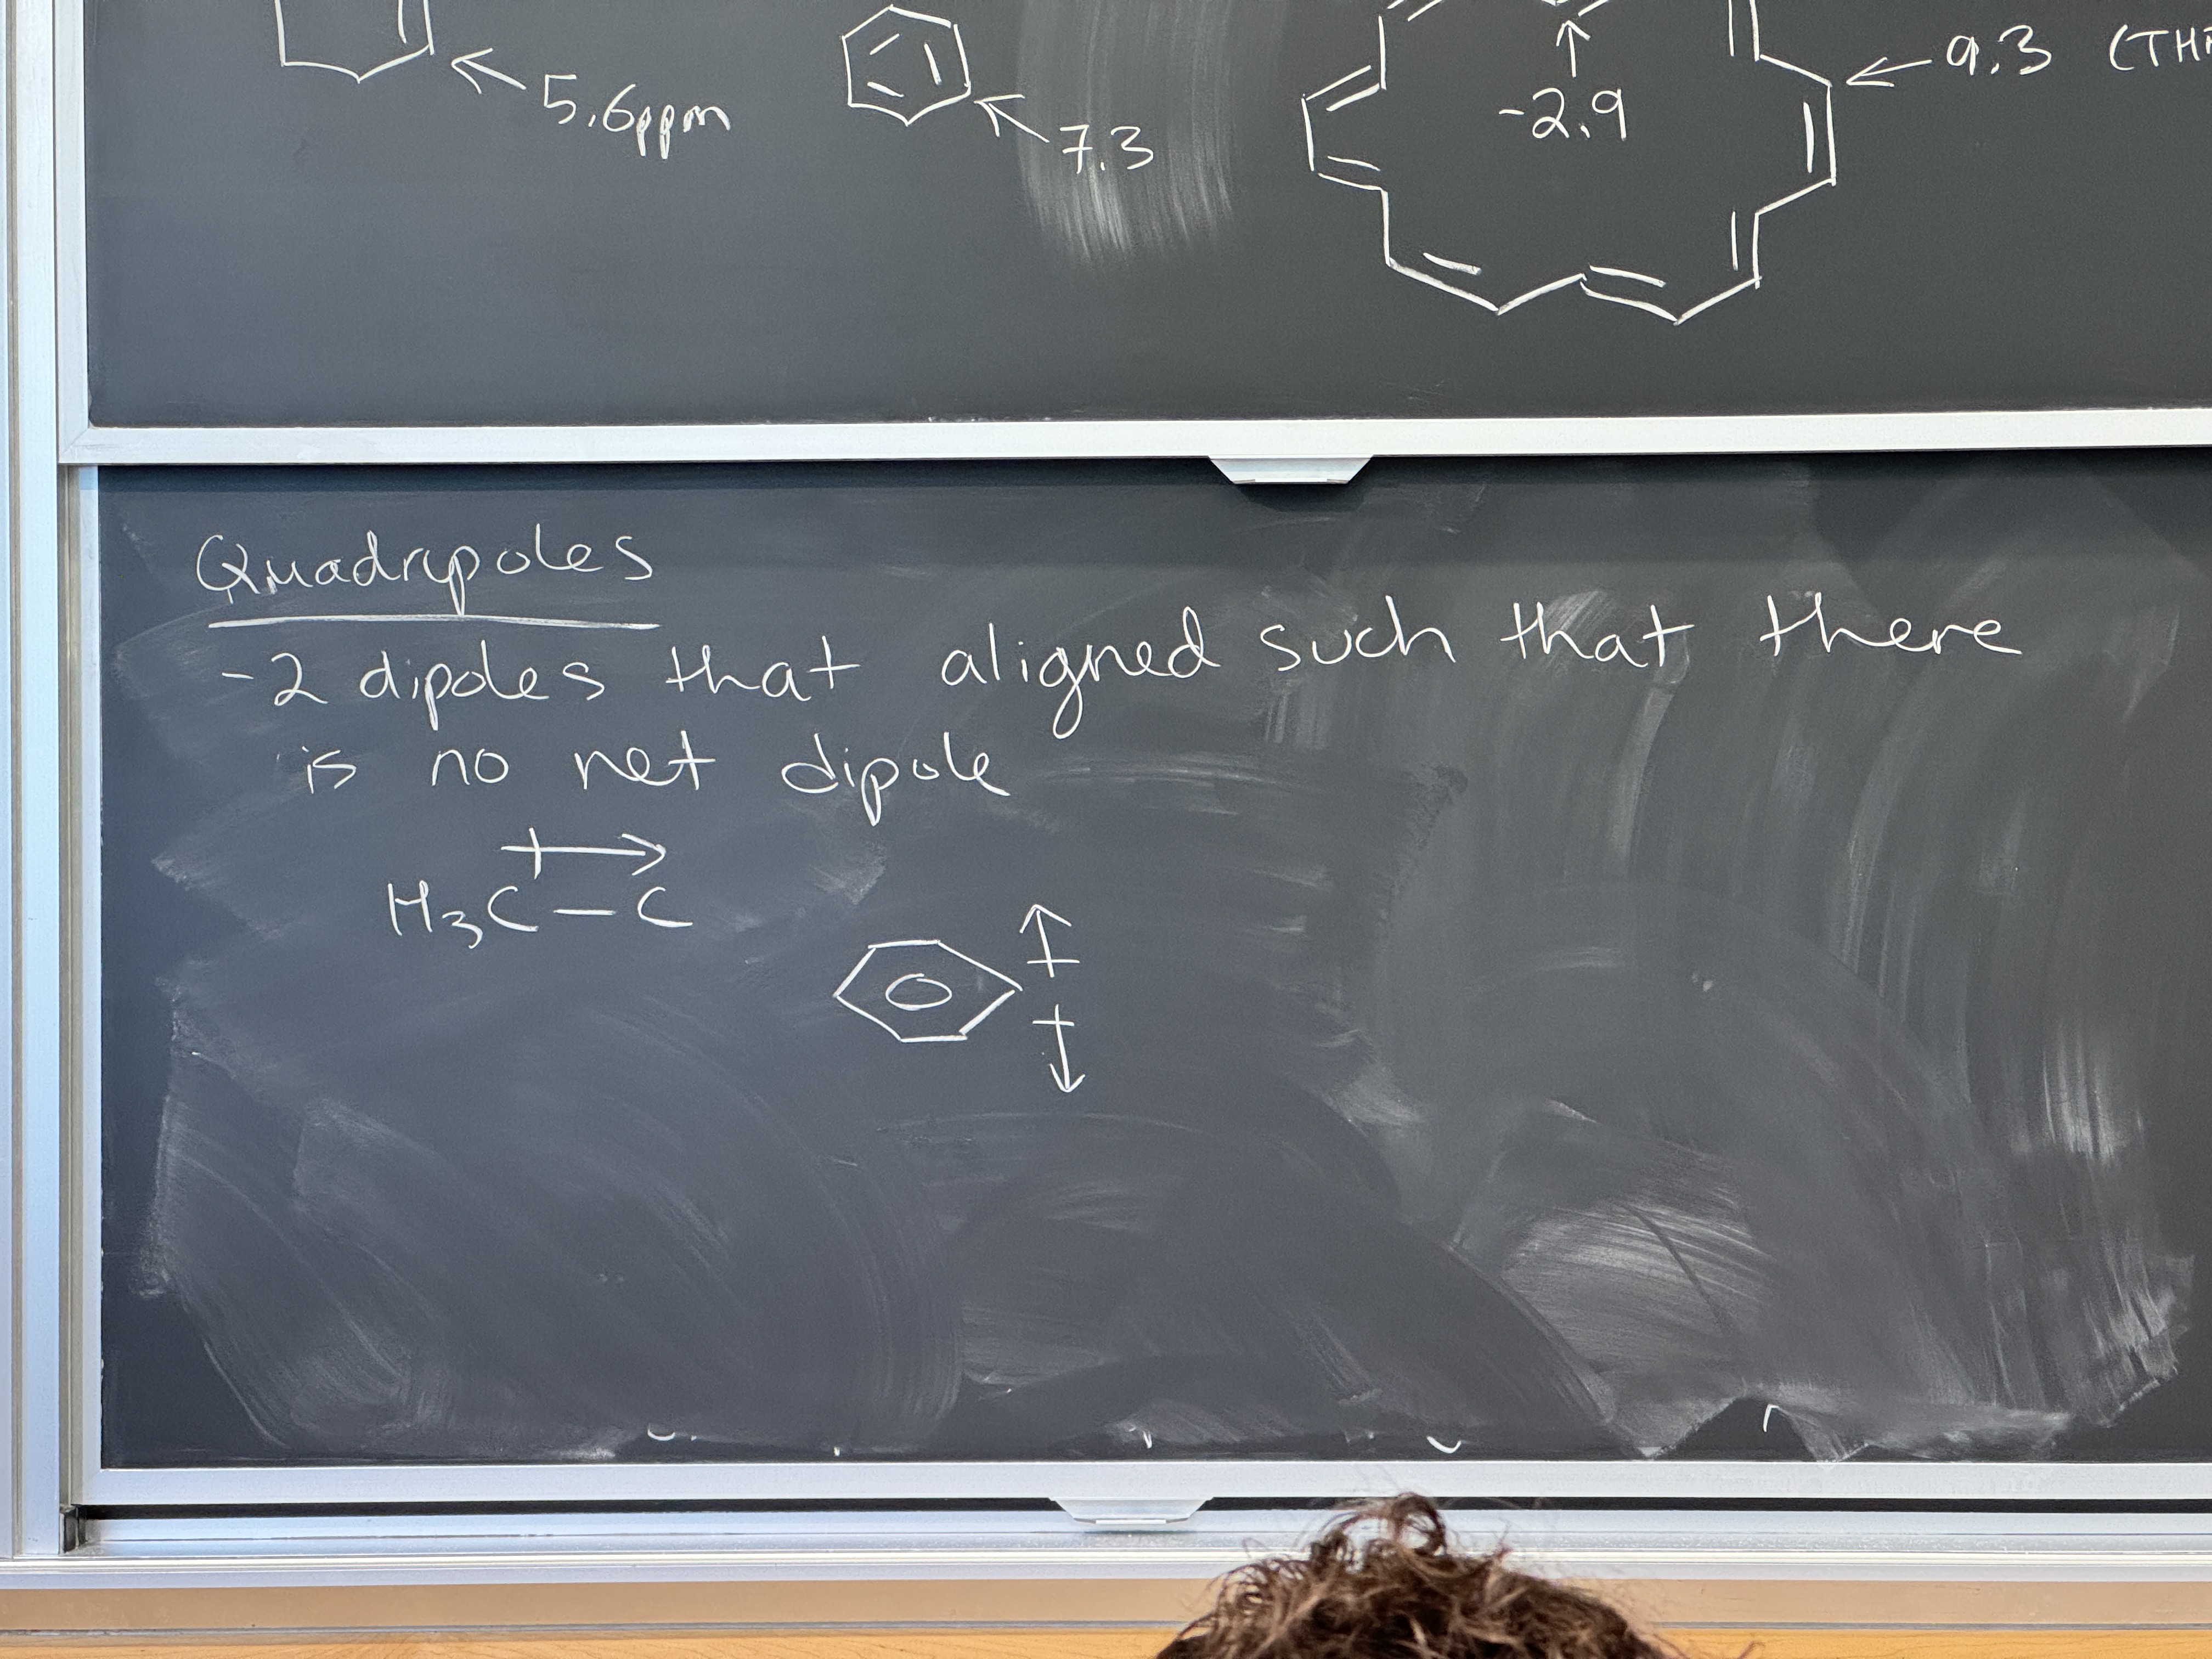 5.6ppm
7.3
-2.9
9.3 (TH
Quadrupoles
-2 dipoles that aligned such that there
is no net dipole
H₃C-C